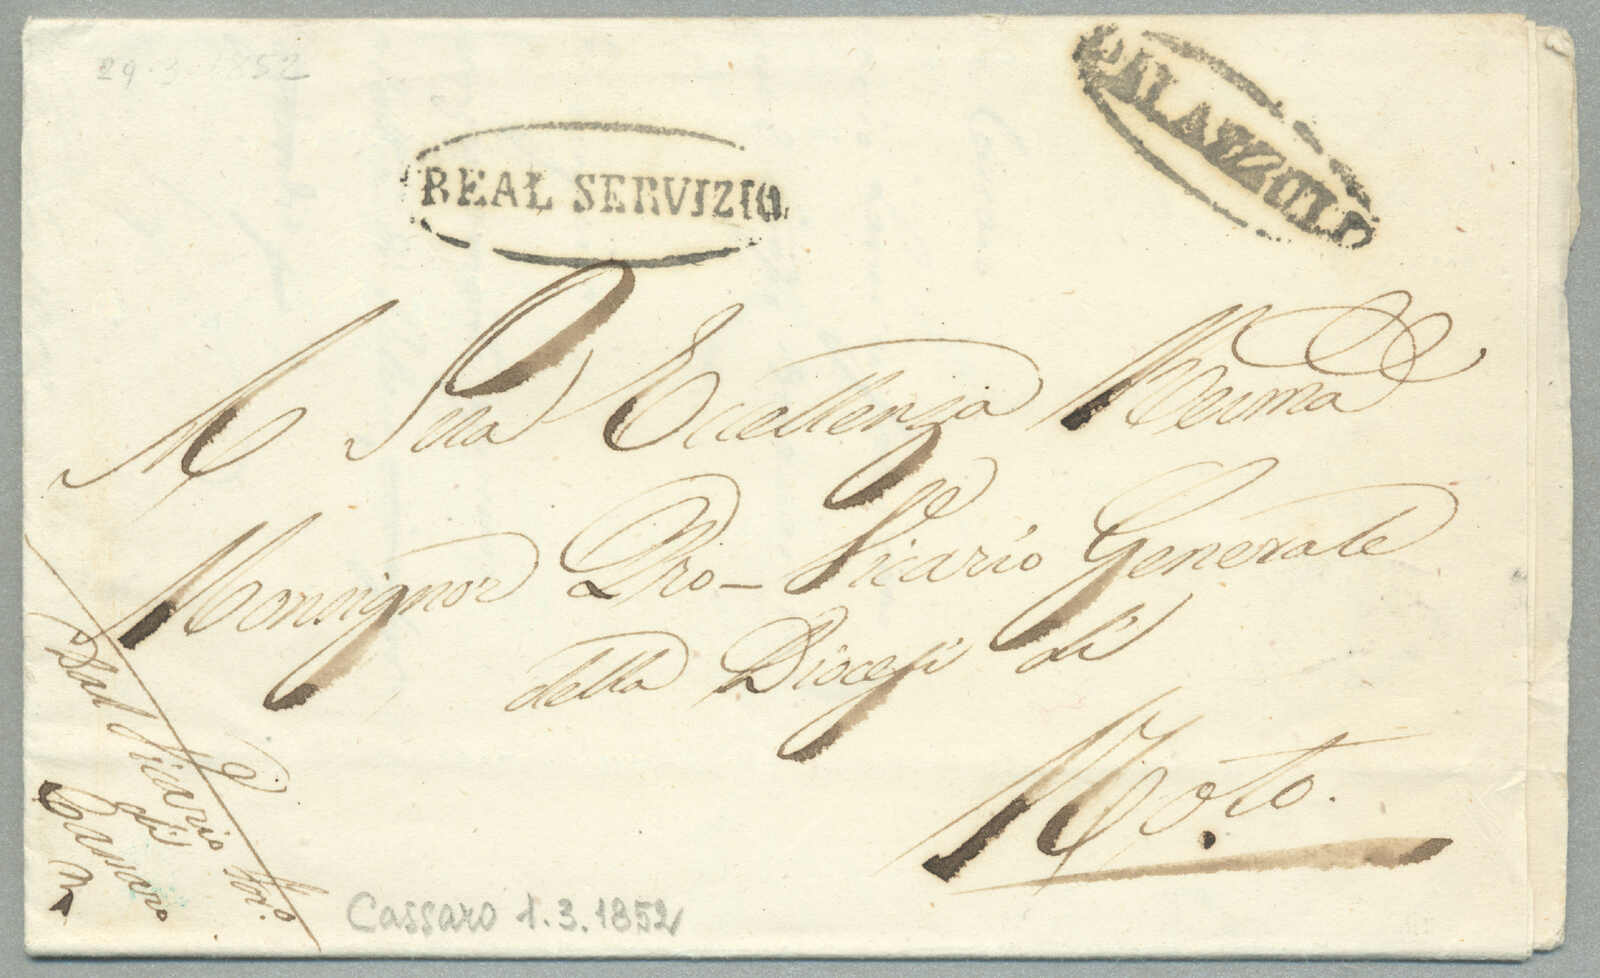 29.3.1852
REAL SERVIZIO
PALAZZOLO
A Sua Eccellenza Revma
Monsignor Pro-Vicario Generale
della Diocesi di
Noto.
Dal Vicario For.o
di
Cassaro
Cassaro 1.3.1852